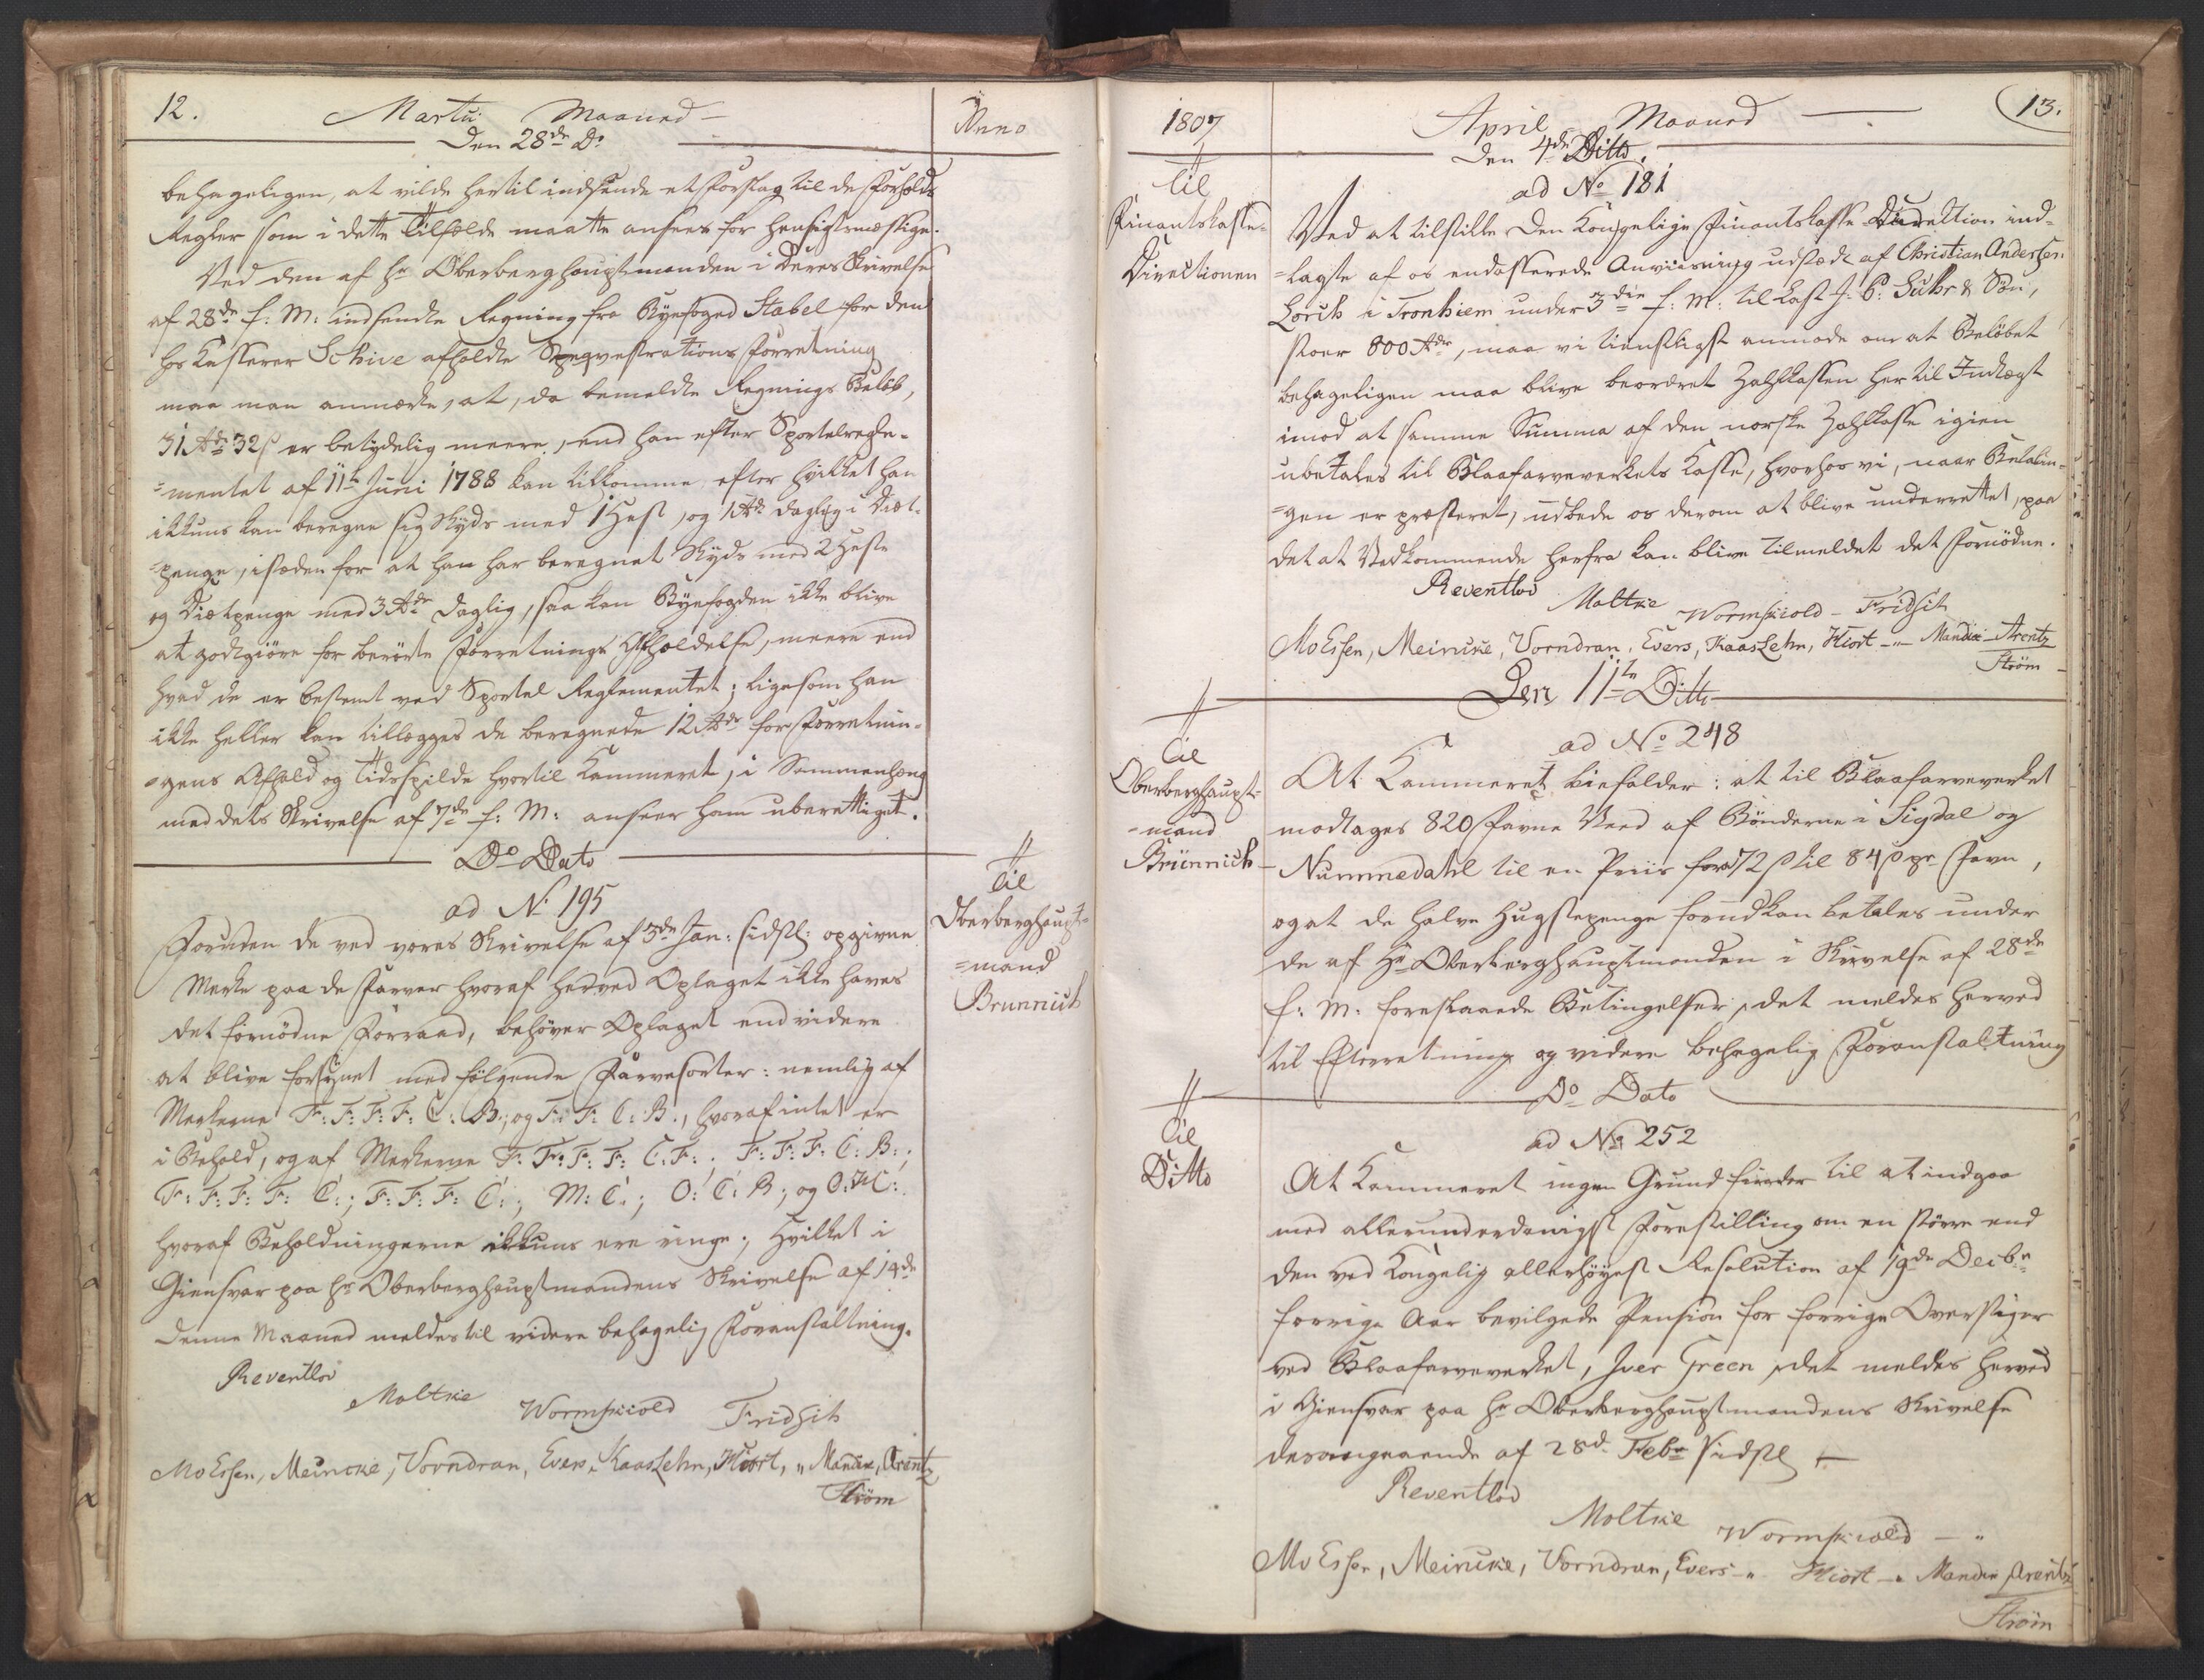 12.
Martii Maaned
Anno
Den 28de Do
behageligen, at vilde hertil indsende et Forslag til de Forholds
Regler som i dette Tilfælde maatte ansees for hensigtsmæssige.
Ved den af Hr Oberberghauptmanden i Deres Skrivelse
af 28de f: M: indsendte Regning fra Byefoged Stabel for den
hos Kasserer Schive afholdte Seqvestrations Forretning
maa man anmærke, at, da bemeldte Regnings Beløb,
31 Rdr 32 s er betydelig meere, end han efter Sportelregle-
=mentet af 11te Juni 1788 kan tilkomme, efter hvilket han
ikkuns kan beregne sig Skyds med 1 Hest, og 1 Rdr daglig i Diæt-
=penge, istæden for at han har beregnet Skyds med 2 Heste
og Diætpenge med 3 Rdr daglig, saa kan Byefogden ikke blive
at godtgiøre for berørte Forretnings Afholdelse, meere end
hvad de er bestemt ved Sportel Reglementet; ligesom han
ikke heller kan tillægges de beregnede 12 Rdr for Forretnin-
=gens Afhold og Tidsspilde hvortil Kammeret, i Sammenhæng
med dets Skrivelse af 7de f: M: anseer ham uberettiget.
Do Dato
ad No 195
Til
Oberberghaupt=
=mand
Brunnich
Foruden de ved vores Skrivelse af 3de Jan: sidstl: opgivne
Merke paa de Farver hvoraf herved Oplaget ikke haves
det fornødne Forraad, behøver Oplaget end videre
at blive forsynet med følgende Farvesorter: nemlig af
Merkerne F: F: F: F: C: B:, og F: F: C: B:, hvoraf intet er
i Behold, og af Merkerne F: F: F: F: C: F:; F: F: F: C: B:;
F: F: F: F: C:; F: F: F: C:; M: C:; O: C: B:; og O: H C:
hvoraf Beholdningerne ikkuns ere ringe; Hvilket i
Giensvar paa Hr Oberberghauptmandens Skrivelse af 14de
denne Maaned meldes til videre behagelig Foranstaltning.
Reventlov
Moltke
Wormskiold Fridsch
MvEssen, Meincke, Vorndran, Evers, KaasLehn, Hiort, " Mandix, Arentz
Strøm
1807
April Maaned
13.
Den 4de Ditto.
ad No 181
Til
Finantskasse-
Directionen
Ved at tilstille Den Kongelige Finantskasse Direktion ind-
=lagte af os endosserede Anviisning udstædt af Christian Andersen
Lorch i Tronhiem under 3die f: M: til Last J. P: Suhr & Søn,
stoer 800 Rdr, maa vi tienstligst anmode om at Beløbet
behageligen maa blive beordret Zahlkassen hertil Indlagt
imod at samme Summa af den norske Zahlkasse igien
udbetales til Blaafarveverkets Kasse, hvorhos vi, naar Betalin-
=gen er præsteret, udbede os derom at blive underrettet, paa
det at Vedkommende herfra kan blive tilmeldet det fornødne.
Reventlov
Moltke Wormskiold - Fridsch
MvEssen, Meincke, Vorndran, Evers, KaasLehn, Hiort -"- Mandix - Arentz
Strøm
Den 11te Ditto
ad No 248
Til
Oberberghaupt-
=mand
Brünnich
At Kammeret biefalder: at til Blaafarveverket
modtages 820 Favne Veed af Bønderne i Sigdal og
Nummedahl til en Priis fra 72 s til 84 s pr Favn,
og at de halve Hugstpenge forud kan betales under
de af Hr Oberberghauptmanden i Skrivelse af 28de
f: M: foreslaaede Betingelser, det meldes herved
til Efterretning og videre behagelig Foranstaltning
Do Dato
ad No 252
Til
Ditto
At Kammeret ingen Grund finder til at indgaa
med allerunderdanigst Forestilling om en større end
den ved Kongelig allerhøyest Resolution af 19de Decbr
forrige Aar bevilgede Pension for forrige Overstiger
ved Blaafarveverket, Iver Green, det meldes herved
i Giensvar paa Hr Oberberghauptmandens Skrivelse
desangaaende af 28d Febr sidstl
Reventlov
Moltke Wormskiold - "
MvEssen, Meincke, Vorndran, Evers -" Hiort -" Mandix Arentz
Strøm